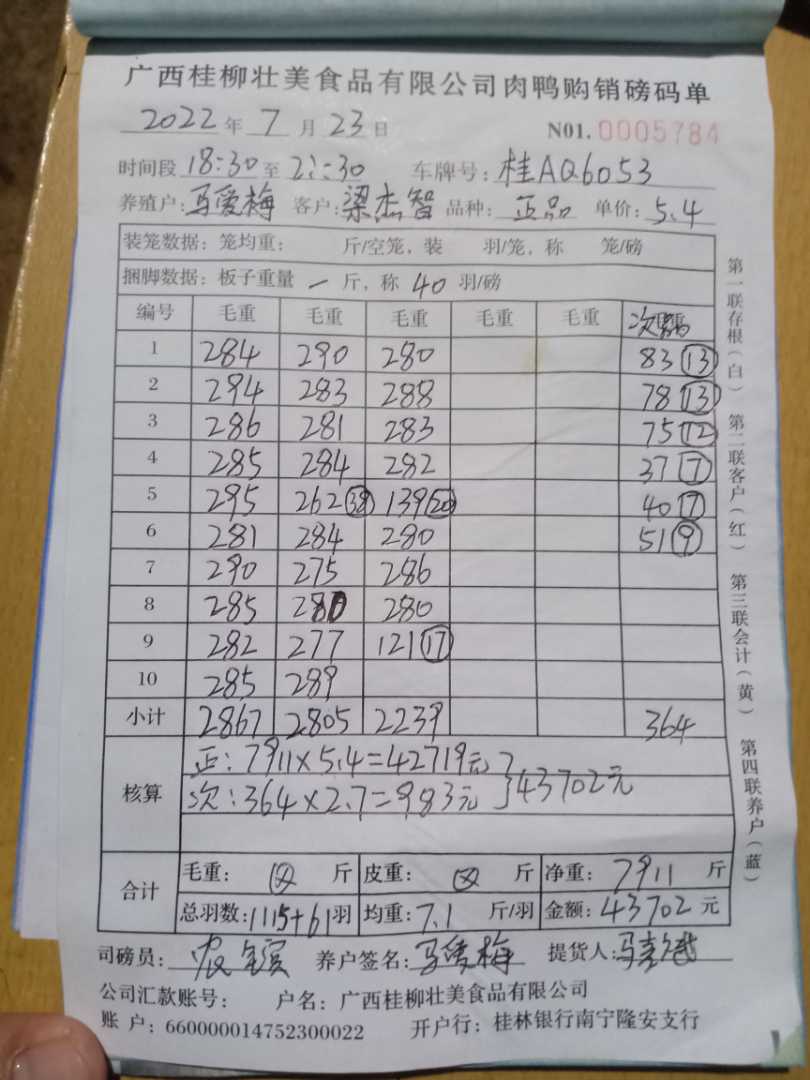 广西桂柳壮美食品有限公司肉鸭购销磅码单
2022年7月23日 N01.0005784
时间段18:30至21:30 车牌号:桂AQ6053
养殖户:马爱梅 客户:梁杰智 品种:正品 单价:5.4
装笼数据:笼均重: 斤/空笼,装 羽/笼,称 笼/磅
捆脚数据:板子重量 一 斤,称 40 羽/磅
编号 毛重 毛重 毛重 毛重 毛重 次鸭
1 284 290 280 83 13
2 294 283 288 78 13
3 286 281 283 75 12
4 285 284 282 37 7
5 295 262 38 139 20 40 7
6 281 284 280 51 9
7 290 275 286
8 285 280 280
9 282 277 121 17
10 285 289
小计 2867 2805 2239 364
核算
正:7911×5.4=42719元
次:364×2.7=983元
43702元
合计
毛重: 斤 皮重: 斤 净重:7911斤
总羽数:1115+61羽 均重:7.1斤/羽 金额:43702元
司磅员: 养户签名:马爱梅 提货人:
公司汇款账号: 户名:广西桂柳壮美食品有限公司
账户:660000014752300022 开户行:桂林银行南宁隆安支行
第一联存根(白) 第二联客户(红) 第三联会计(黄) 第四联养户(蓝)